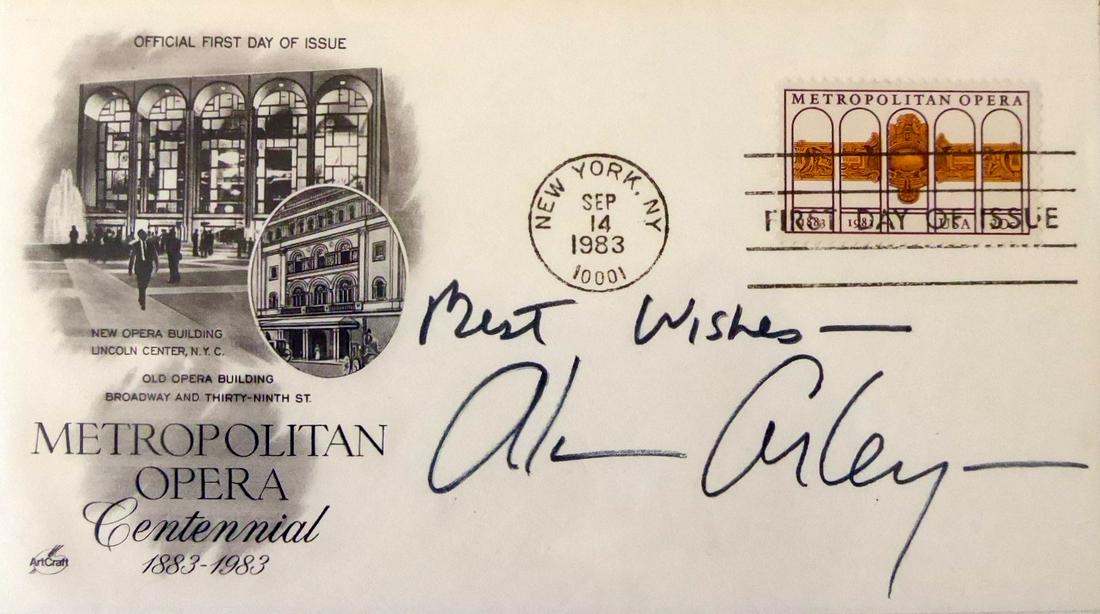 OFFICIAL FIRST DAY OF ISSUE
METROPOLITAN OPERA
1883 1983 USA
NEW YORK, NY
SEP
14
1983
10001
FIRST DAY OF ISSUE
Best Wishes —
NEW OPERA BUILDING
LINCOLN CENTER, N.Y.C.
OLD OPERA BUILDING
BROADWAY AND THIRTY-NINTH ST.
METROPOLITAN
OPERA
Centennial
1883-1983
ArtCraft